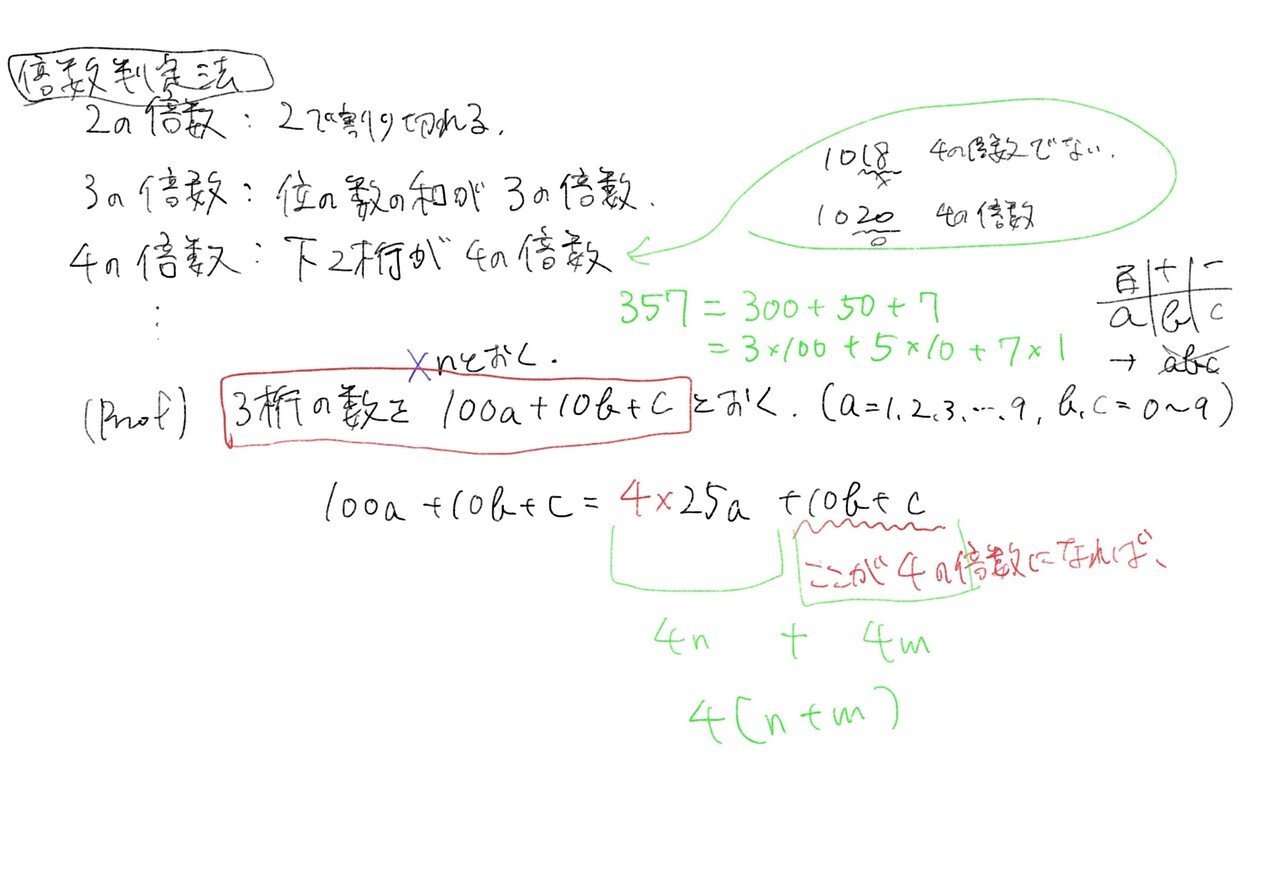 倍数判定法
2の倍数：2で割り切れる．
3の倍数：位の数の和が 3の倍数．
4の倍数：下2桁が 4の倍数
⋮
1018 4の倍数でない．
×
1020 4の倍数
○
357 = 300 + 50 + 7
= 3×100 + 5×10 + 7×1
百|十|一
a|b|c
→ abc
×nとおく．
(Proof) 3桁の数を 100a+10b+c とおく．(a=1,2,3,…,9, b,c=0～9)
100a+10b+c = 4×25a +10b+c
ここが 4の倍数になれば、
4n + 4m
4(n+m)